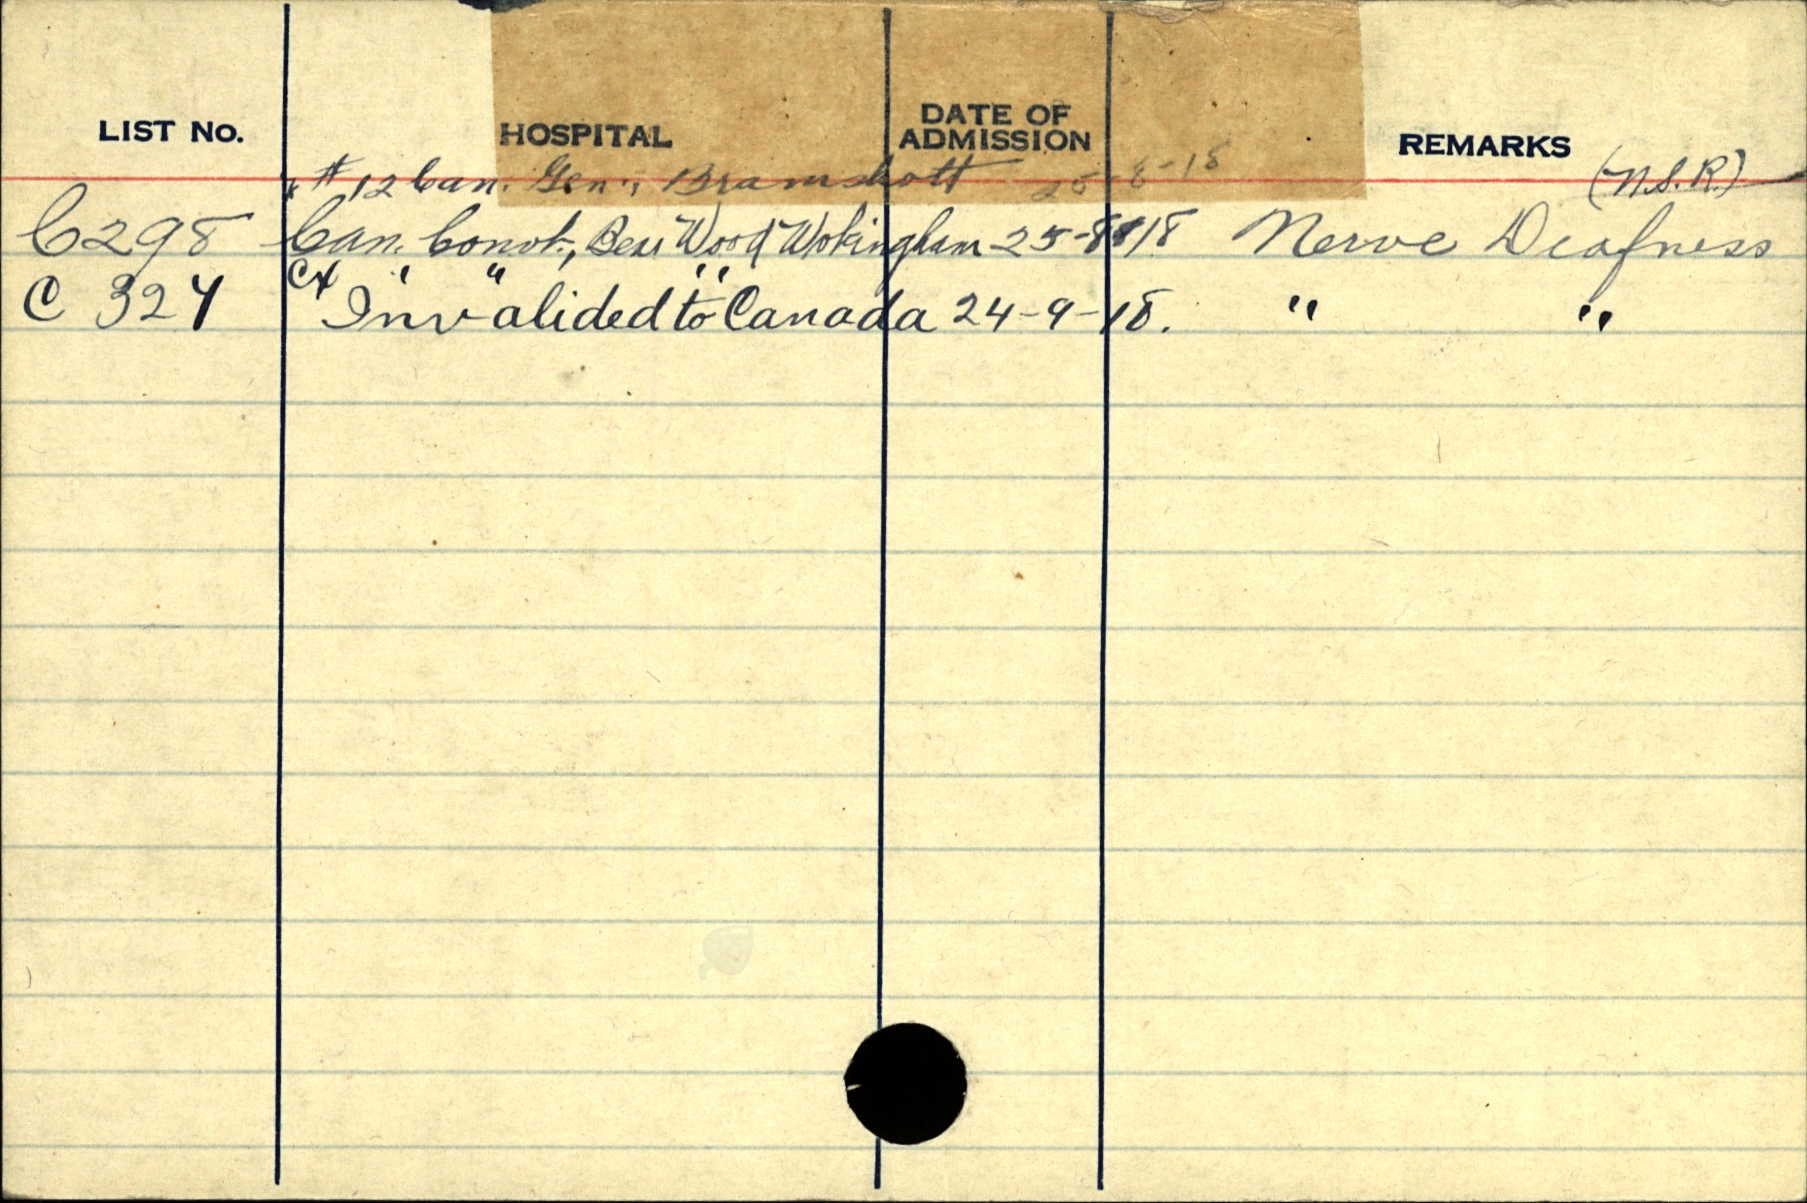 LIST No. HOSPITAL DATE OF ADMISSION REMARKS
# 12 Can. Gen., Bramshott 25-8-18 (N.S.R.)
C298 Can. Convt., Bear Wood Wokingham 25-8-18 Nerve Deafness
" " "
C 324 Invalided to Canada 24-9-18. " "